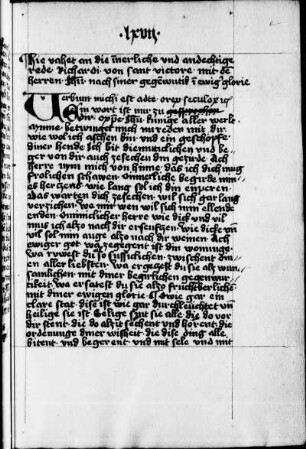 ·lxvij·
Hie vahet an die innerliche und andechtige
rede Richardi von sant victore mit de
herren Jhu nach siner gegenwirtikeit in ewig glorie
Verbum michi est ad te o rex seculorum
Ein wort ist mir zu
dir. o xpe Jhu künige aller welt
mynne betwinget mich zu reden mit dir
wie wol ich aschen bin und ein geschopffe
diner hende Ich bit diemuticlichen und be
ger von dir auch zesechen din gezirde Ach
herre nym mich von hinne das ich dich mug
frolichen schawen Ominicliche begirde min
es hertzens wie lang sol ich din enperen
Das warten dich zesechen wil sich gar lang
verziehen we mir wen wil sich min ellende
enden Ominniclicher herre wie dick und vil
mus ich also nach dir ersenftzen wie dick und
vil sol min auge also nach dir weinen Ach
ewiger got wa zegegent ist din wonunge
wa ruwest du so süssiclichen zwischent din
en aller liebsten wa ergezest du sie als wun
samlichen mit diner begirlichen gegenwur
tikeit wa ersatest du sie also fruchtberliche
mit diner ewigen glorie O wie gar ein
clare stat dise ist wie gar durchluchtet und
heilig sie ist Selige sint sie alle die do vor
dir stent die do alzit sechent und hörent die
ordenunge diner wisheit die dise ding alle
ditent und begerent und mit sele und mit